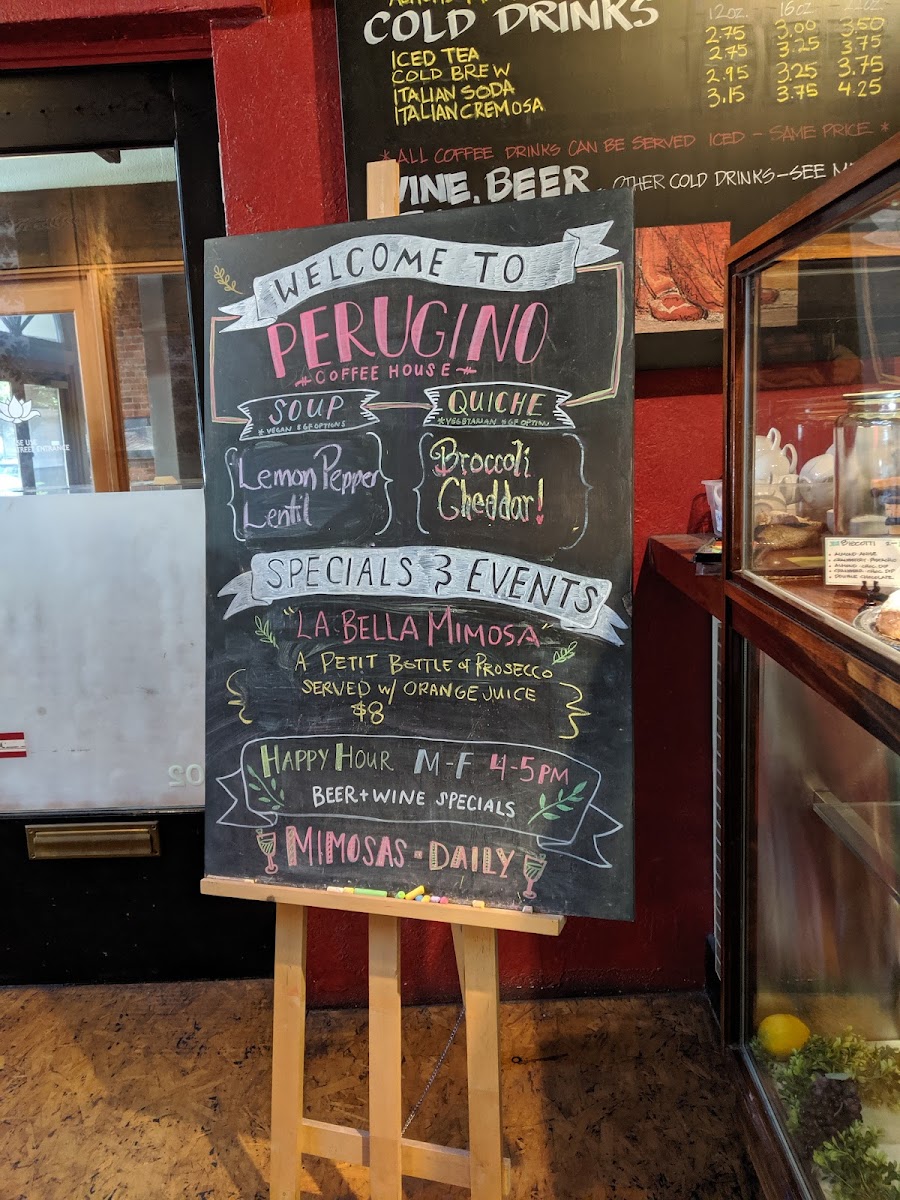 COLD DRINKS
12oz. 16oz
2.75 3.00 3.50
ICED TEA 2.75 3.25 3.75
COLD BREW 2.95 3.25 3.75
ITALIAN SODA 3.15 3.75 4.25
ITALIAN CREMOSA
*ALL COFFEE DRINKS CAN BE SERVED ICED - SAME PRICE *
WINE, BEER
OTHER COLD DRINKS-SEE
WELCOME TO
PERUGINO
COFFEE HOUSE
SOUP
*VEGAN & GF OPTIONS
Lemon Pepper
Lentil
QUICHE
*VEGETARIAN & GF OPTION
Broccoli
Cheddar!
SPECIALS & EVENTS
"LA BELLA MIMOSA"
A PETIT BOTTLE of PROSECCO
SERVED W/ ORANGE JUICE
$8
HAPPY HOUR M-F 4-5PM
BEER+WINE SPECIALS
MIMOSAS - DAILY
BISCOTTI
SE USE
STREET ENTRANCE